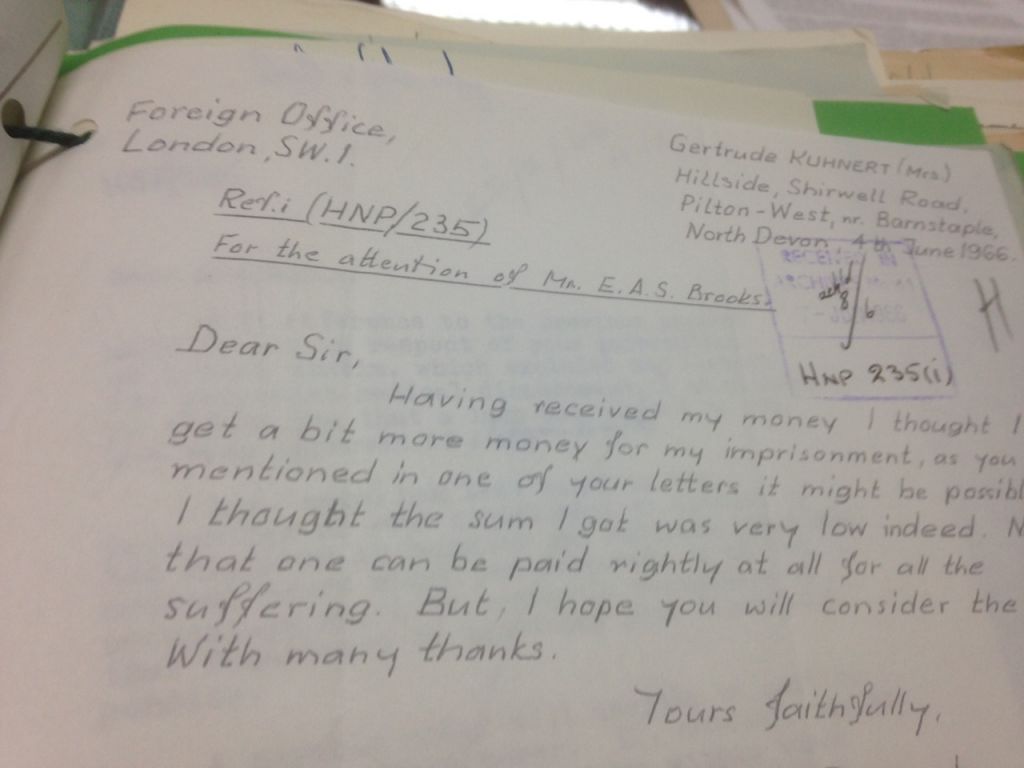 Foreign Office,
London, SW.1.
Gertrude KUHNERT (Mrs)
Hillside, Shirwell Road,
Pilton-West, nr. Barnstaple,
North Devon. 4th June 1966.
Ref.: (HNP/235)
For the attention of Mr. E.A.S. Brooks.
RECEIVED IN
HNP 235(i)
H
Dear Sir,
Having received my money I thought I
get a bit more money for my imprisonment, as you
mentioned in one of your letters it might be
I thought the sum I got was very low indeed.
that one can be paid rightly at all for all the
suffering. But, I hope you will consider the
With many thanks.
Yours faithfully,